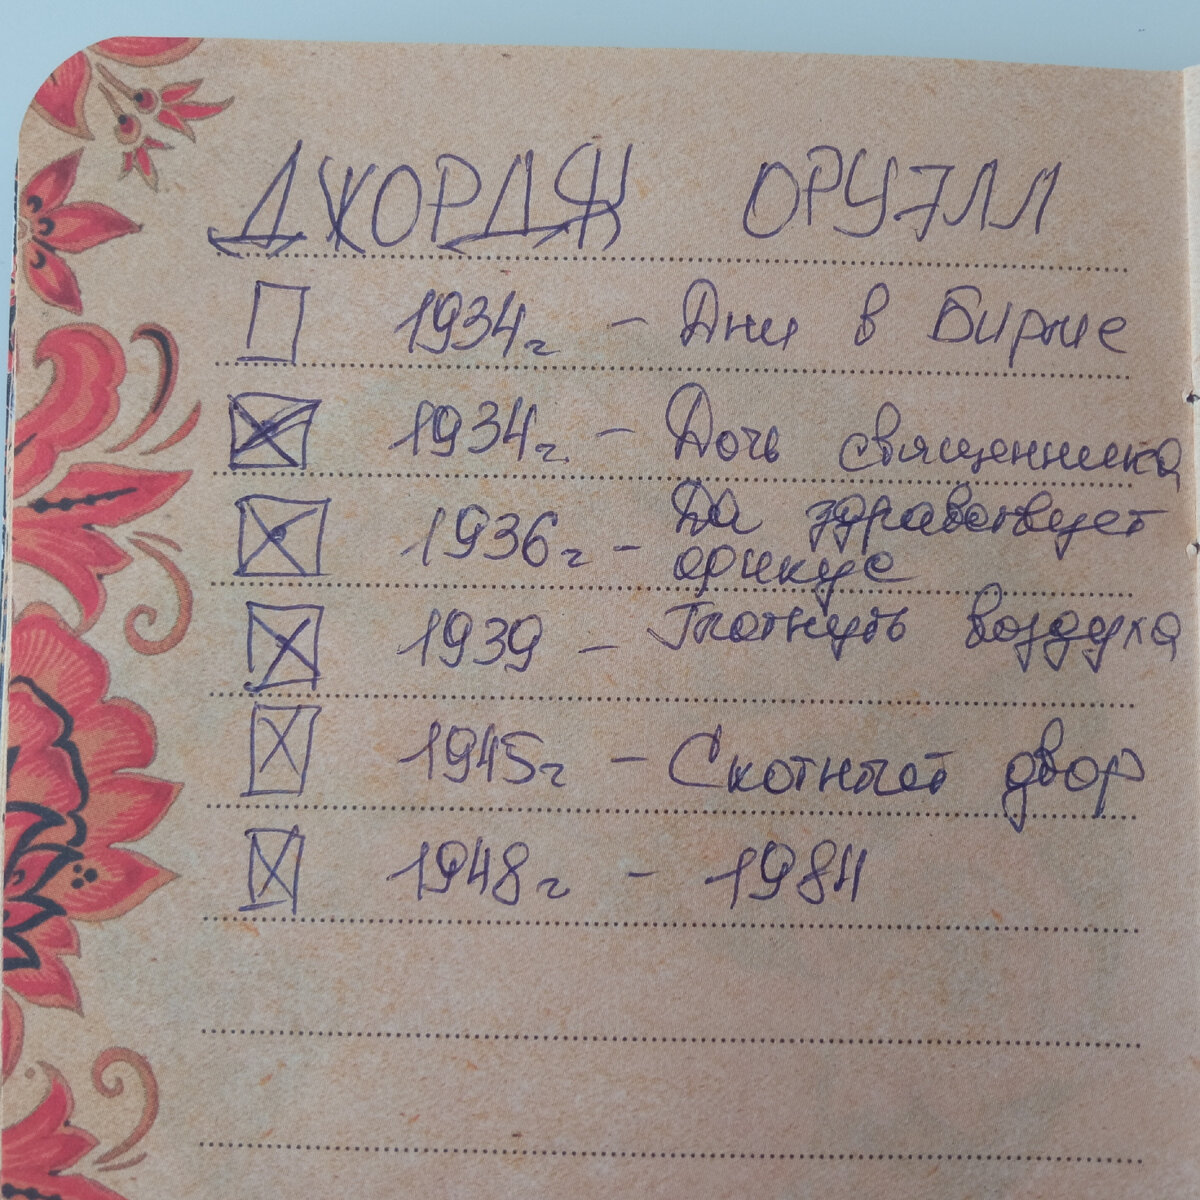 ДЖОРДЖ ОРУЭЛЛ
1934г – Дни в Бирме
1934г. – Дочь священника
1936г – Да здравствует
фикус
1939 – Глотнуть воздуха
1945г – Скотный двор
1948г – 1984